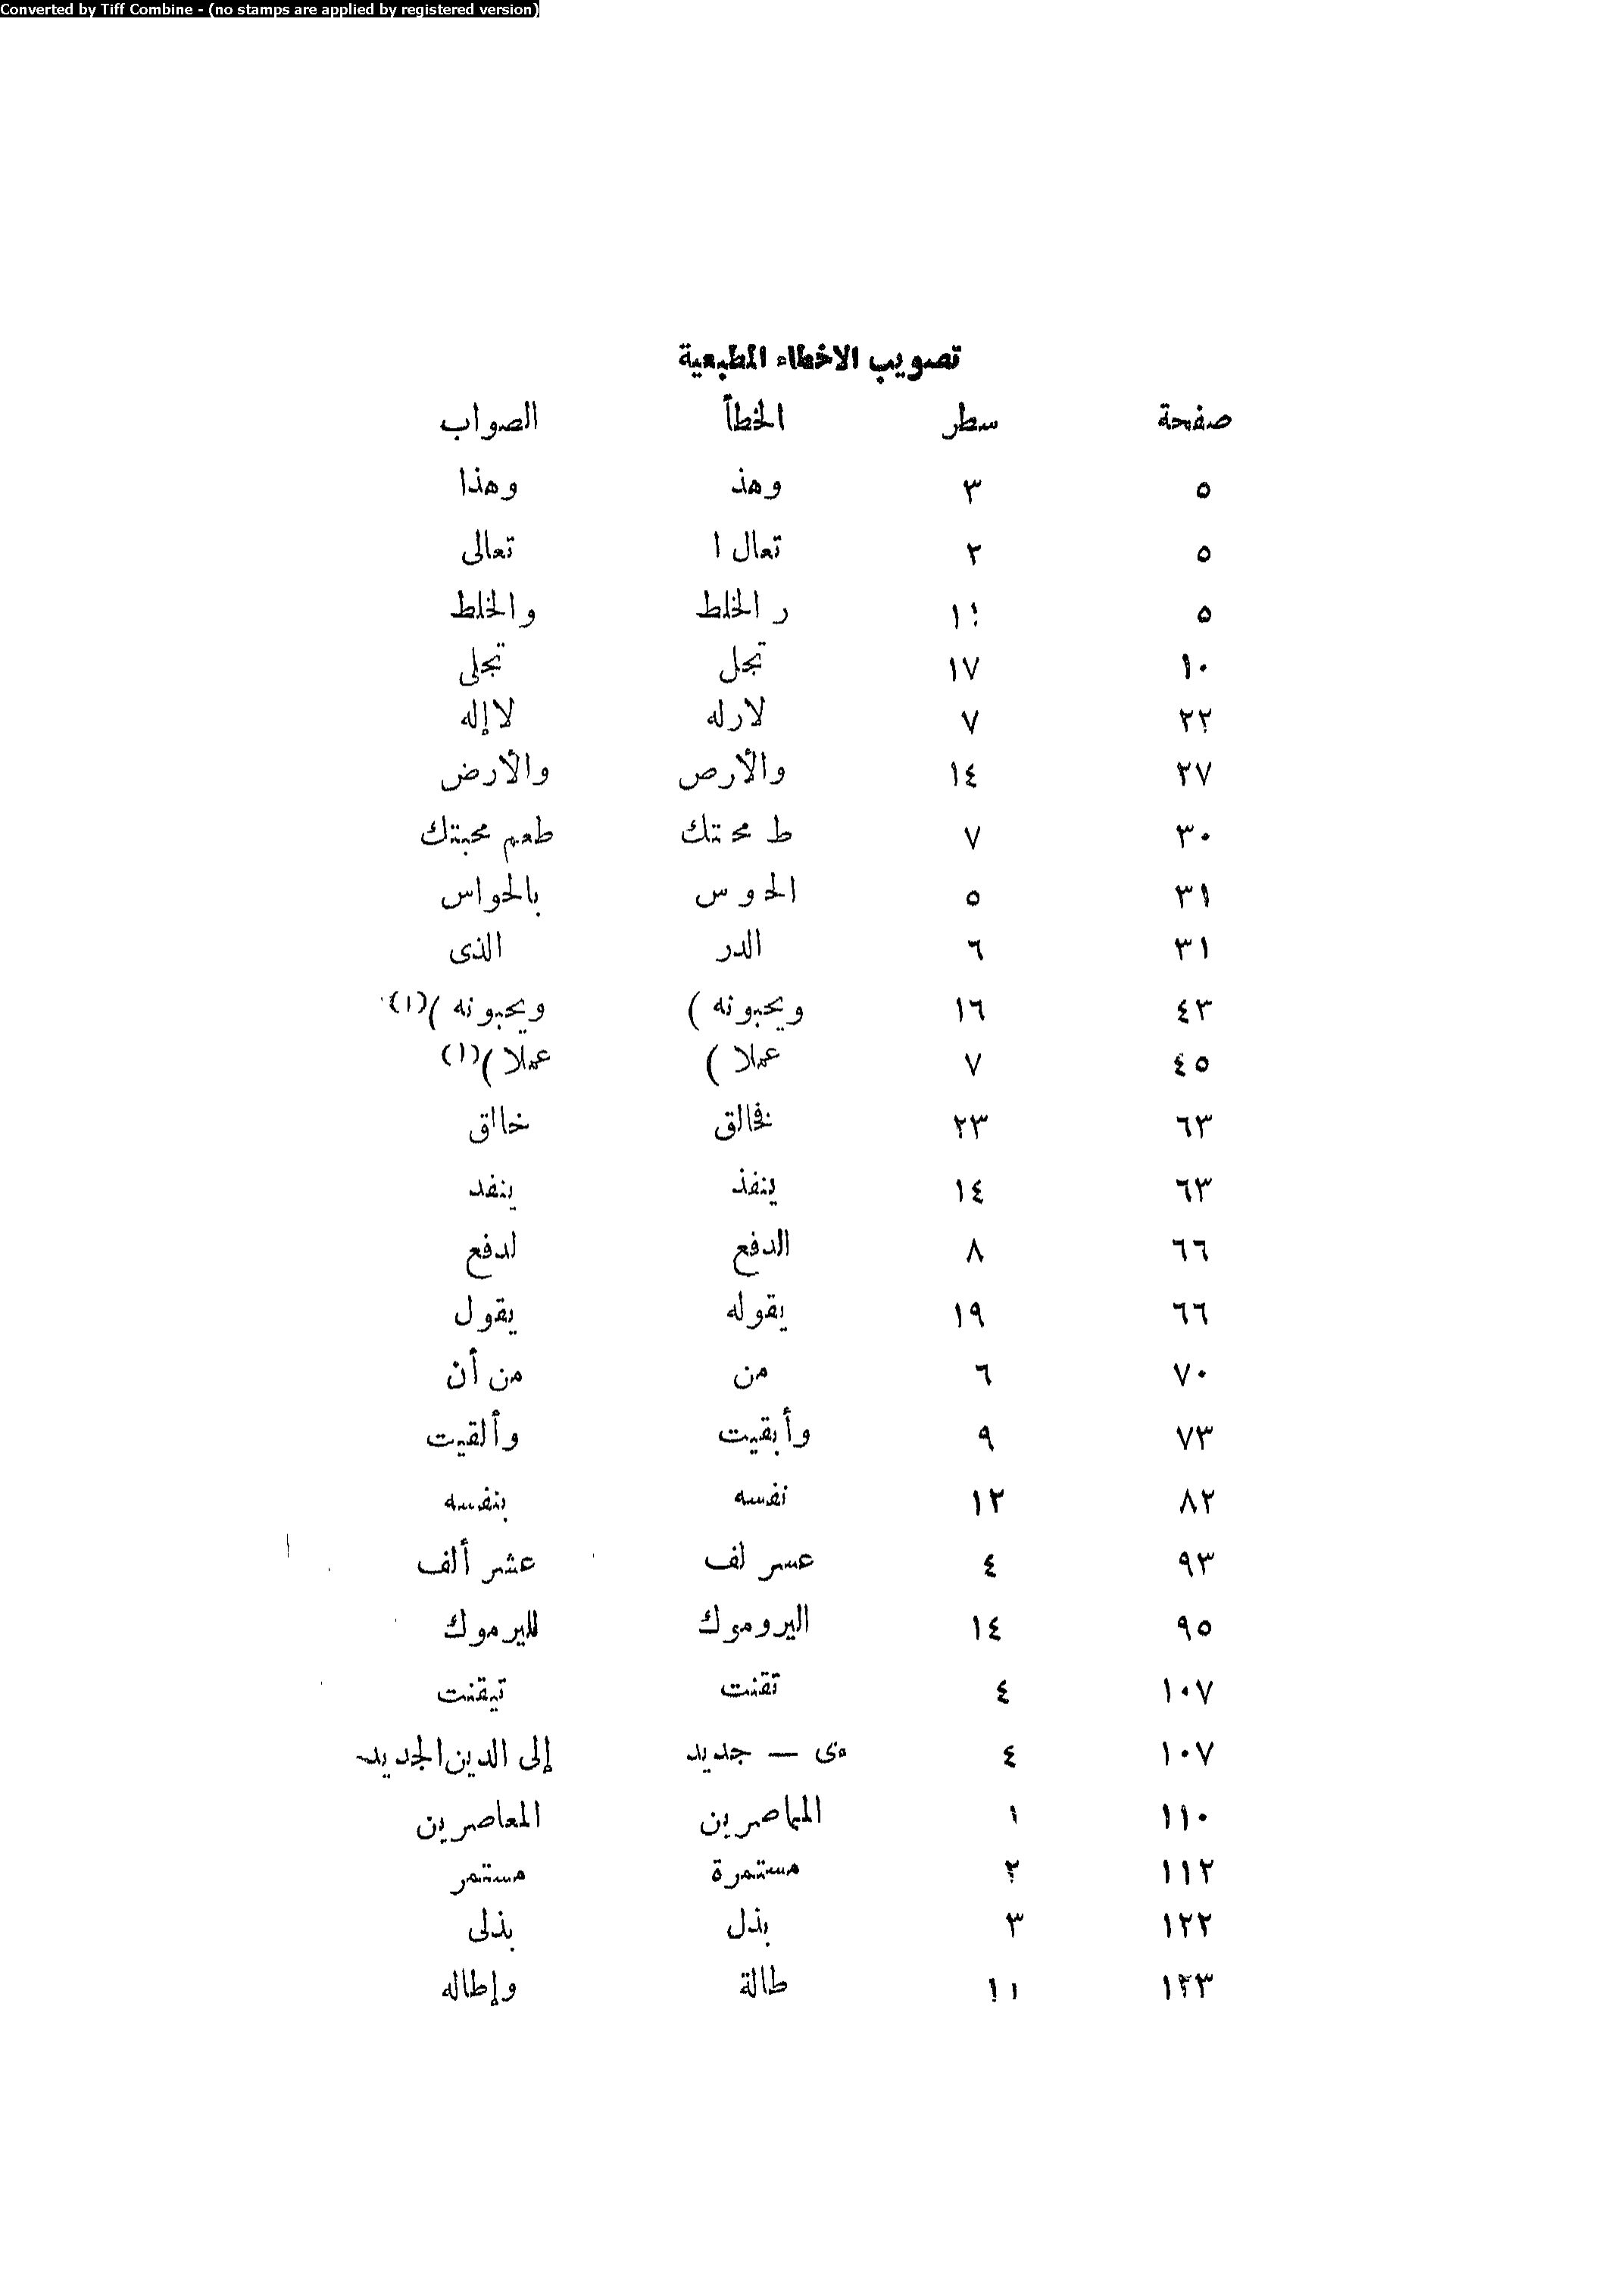 Converted by Tiff Combine - (no stamps are applied by registered version)
تصويب الاخطاء المطبعية
صفحة سطر الخطأ الصواب
٥ ٣ وهذ وهذا
٥ ٢ تعال ا تعالى
٥ ١١ ر الخلط والخلط
١٠ ١٧ تجل تجلى
٢٢ ٧ لارله لاإله
٢٧ ١٤ والأرص والأرض
٣٠ ٧ ط محتك طعم محبتك
٣١ ٥ الحو س بالحواس
٣١ ٦ الدر الذى
٤٣ ١٦ ويحبونه ) ويحبونه )(١)
٤٥ ٧ عملا ) عملا )(١)
٦٣ ٢٣ فخالق خالق
٦٣ ١٤ ينفذ ينفد
٦٦ ٨ الدفع لدفع
٦٦ ١٩ يقوله يقول
٧٠ ٦ من من أن
٧٣ ٩ وأبقيت وألقيت
٨٢ ١٢ نفسه بنفسه
٩٣ ٤ عسر لف عشر ألف
٩٥ ١٤ اليروموك لليرموك
١٠٧ ٤ تقنت تيقنت
١٠٧ ٤ ى — جديد إلى الدين الجديد
١١٠ ١ المماصرين المعاصرين
١١٢ ٢ مستمرة مستمر
١٢٢ ٣ بذل بذلى
١٢٣ ١١ طالة وإطاله